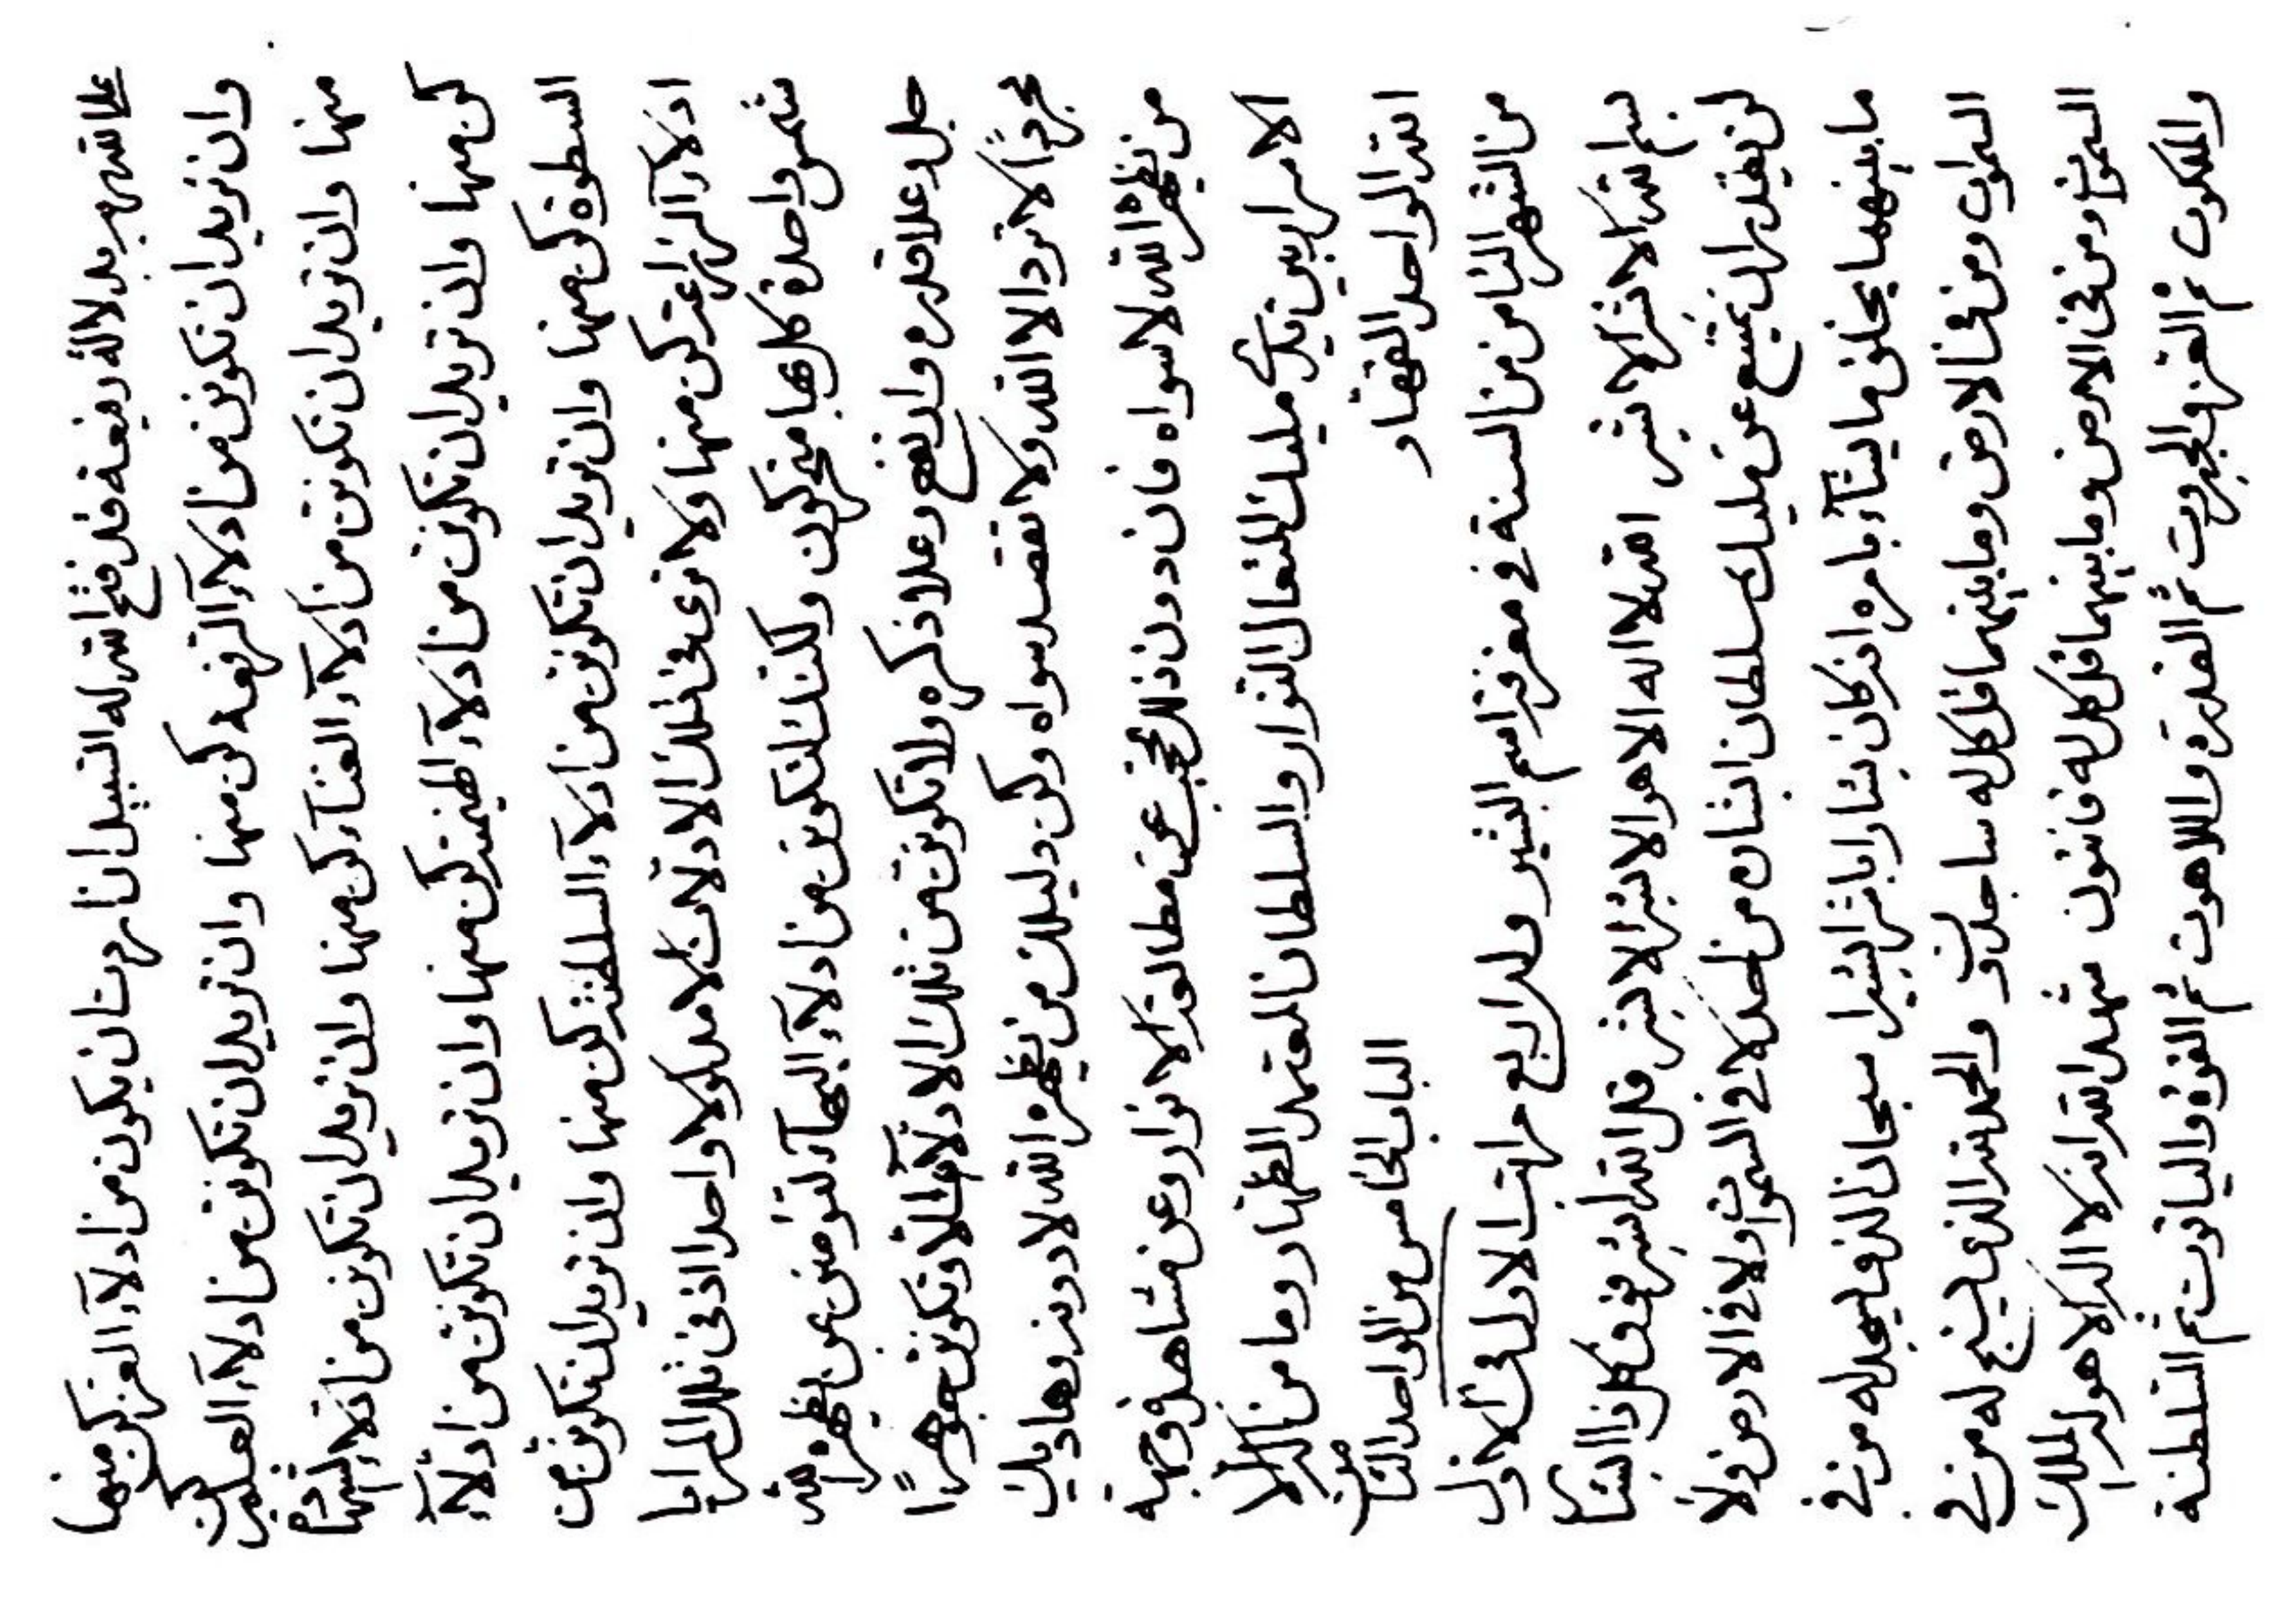 بدلالة رفيعة قد فتح الله له السبيل ان اردت ان يكون من ادلاء العز كن منها
وان تريد ان تكونن من ادلاء الرفعه كن منها وان تريد ان تكونن من ادلاء العظمة كن
منها وان تريد ان تكونن من ادلاء الغناء كن منها وان تريد ان تكونن من ادلاء
كن منها وان تريد ان تكونن من ادلاء الهيمنة كن منها وان تريد ان تكونن من ادلاء
السطوة كن منها وان تريد ان تكونن من ادلاء السلطنة كن منها وان تريد ان تكونن من
ادلاء كن منها ولا ترى في تلك الادلات الا مدلولا واحدا اذ في تلك المرايا
شمس واحدة كلها متحركون ولكنك لتكونن من ادلاء البهاء لتؤمنن بمن يظهره الله
جل وعلا قدره وارتفع وعلا ذكره ولا تكونن من تلك الادلاء الا وتكونن جوهرًا
مجردًا لا ترد الا الله ولا تقصد سواه وكن دليلك من يظهره الله لا دونه وهاديك
من يظهره الله لا سواه فان دون ذلك محتجب عن مطالعة الانوار وعن مشاهد وجهة
الاسرار بين يدي مليك المتعال النوار والسلطان المعتمد الظهار وما من اله الا
الله الواحد القهار الباب الخامس من الواحد الثامن
من الشهر الثامن من السنة في معرفة اسم البشير وله اربع مراتب الاول في الاول
بسم الله الابشر الابشر الله لا اله الا هو الابشر الابشر قل الله ابشر فوق كل ذا ابشار
لن يقدر ان يمتنع عن مليك سلطان ابشاره من احد لا في السموات ولا في الارض ولا
ما بينهما يخلق ما يشاء بامره انه كان بشارا باشرا بشيرا سبحان الذي يسجد له من في
السموات ومن في الارض وما بينهما قل كل له ساجدون والحمد لله الذي يسبح له من في
السموات ومن في الارض وما بينهما قل كل له قانتون شهد الله انه لا اله الا هو له الملك
والملكوت ثم العز والجبروت ثم القدرة واللاهوت ثم القوة والياقوت ثم السلطنة